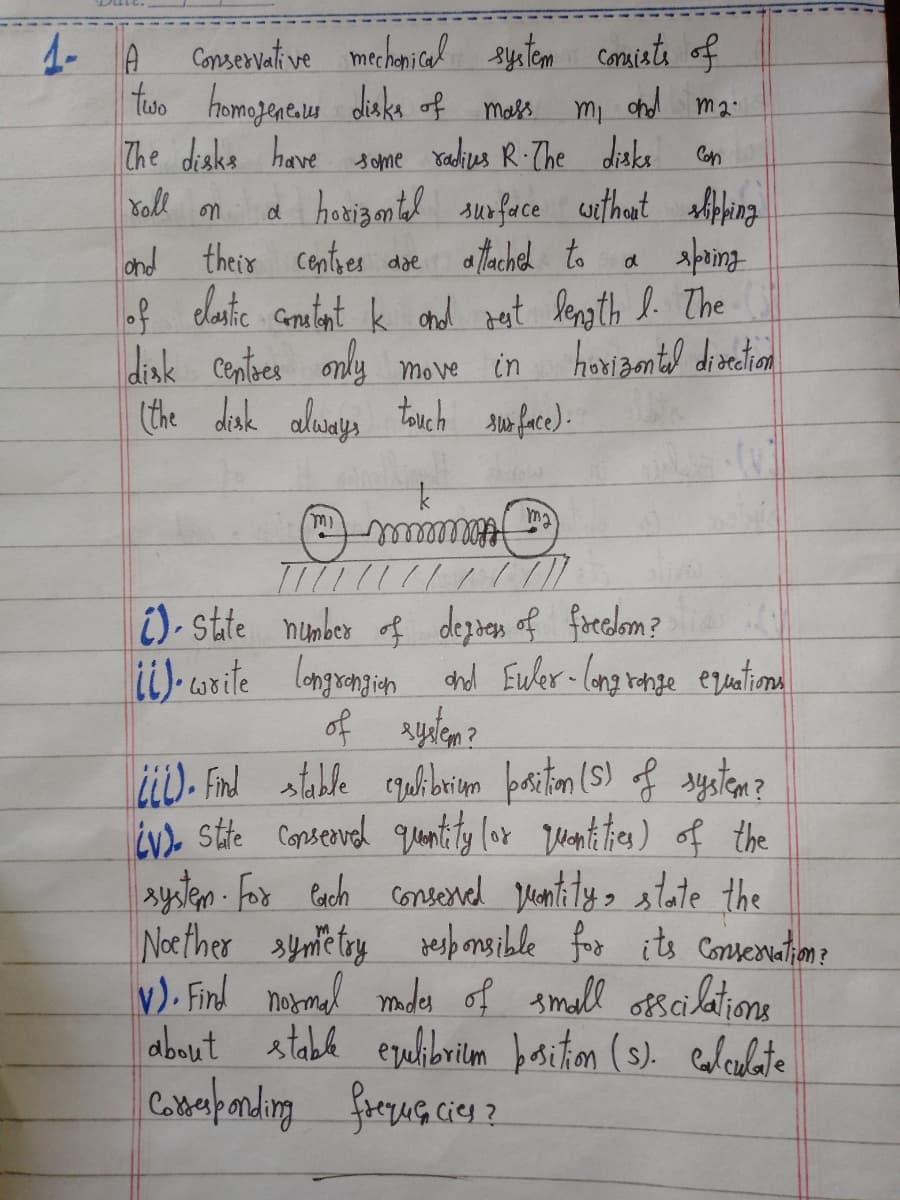 1- A Conservative mechanical system consists of
two homogeneous disks of mass m1 and m2.
The disks have same radius R. The disks can
roll on a horizontal surface without slipping
and their centres are attached to a spring
of elastic constant k and rest length l. The
disk centres only move in horizontal direction
(the disk always touch surface).
k
m1 m2
i). State number of degrees of freedom?
ii). write Langrangian and Euler-Langrange equations
of system?
iii). Find stable equlibrium position (s) of system?
iv). State Conserved quantity (or quantities) of the
system. For each conserved quantity, state the
Noether symmetry responsible for its Conservation?
v). Find normal modes of small osscilations
about stable equlibrium position (s). Calculate
Corresponding frequencies?